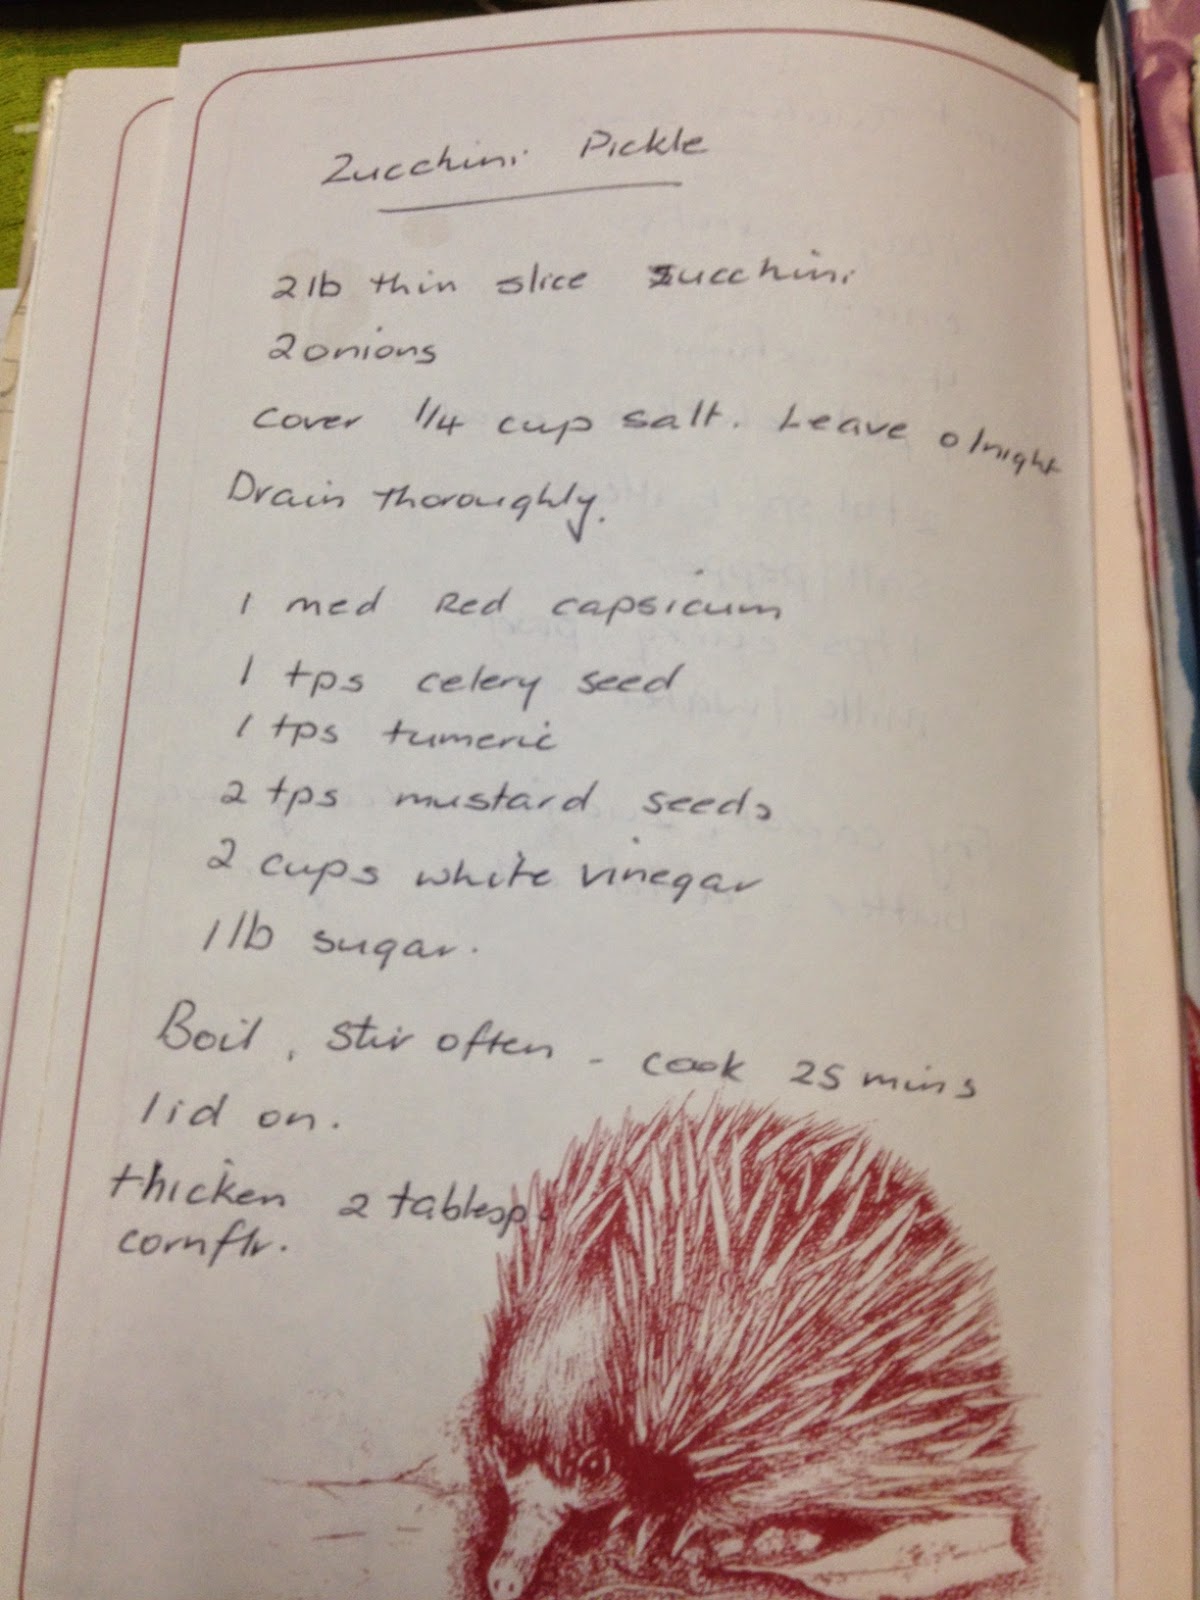 Zucchini Pickle
2lb thin slice zucchini
2 onions
cover 1/4 cup salt. Leave o/night
Drain thoroughly.
1 med Red capsicum
1 tps celery seed
1 tps tumeric
2 tps mustard seeds
2 cups white vinegar
1 lb sugar.
Boil, Stir often - cook 25 mins
lid on.
thicken 2 tablesp.
cornflr.